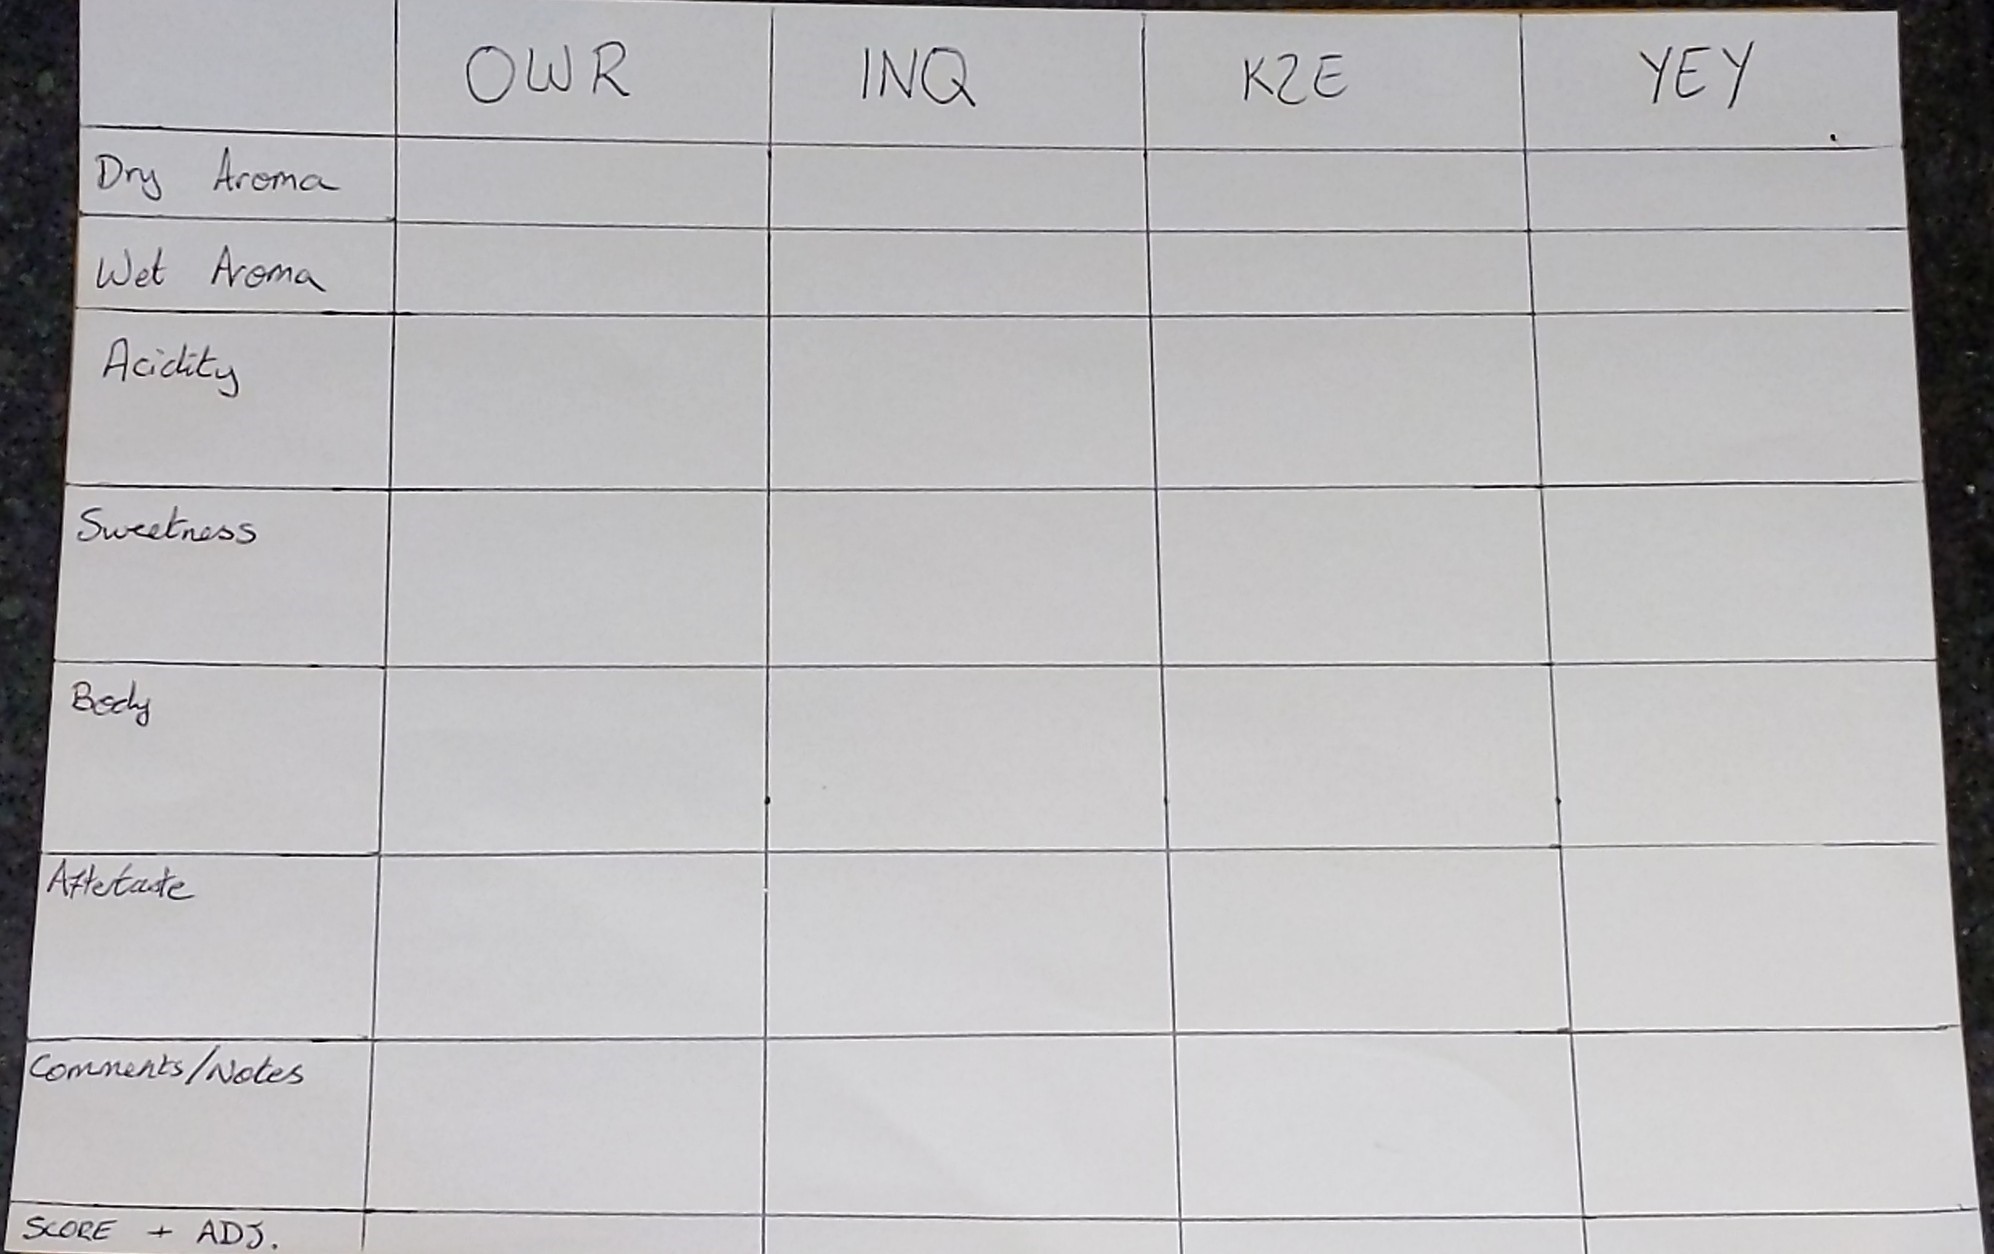 OWR INQ K2E YEY
Dry Aroma
Wet Aroma
Acidity
Sweetness
Body
Aftertaste
Comments/Notes
SCORE + ADJ.